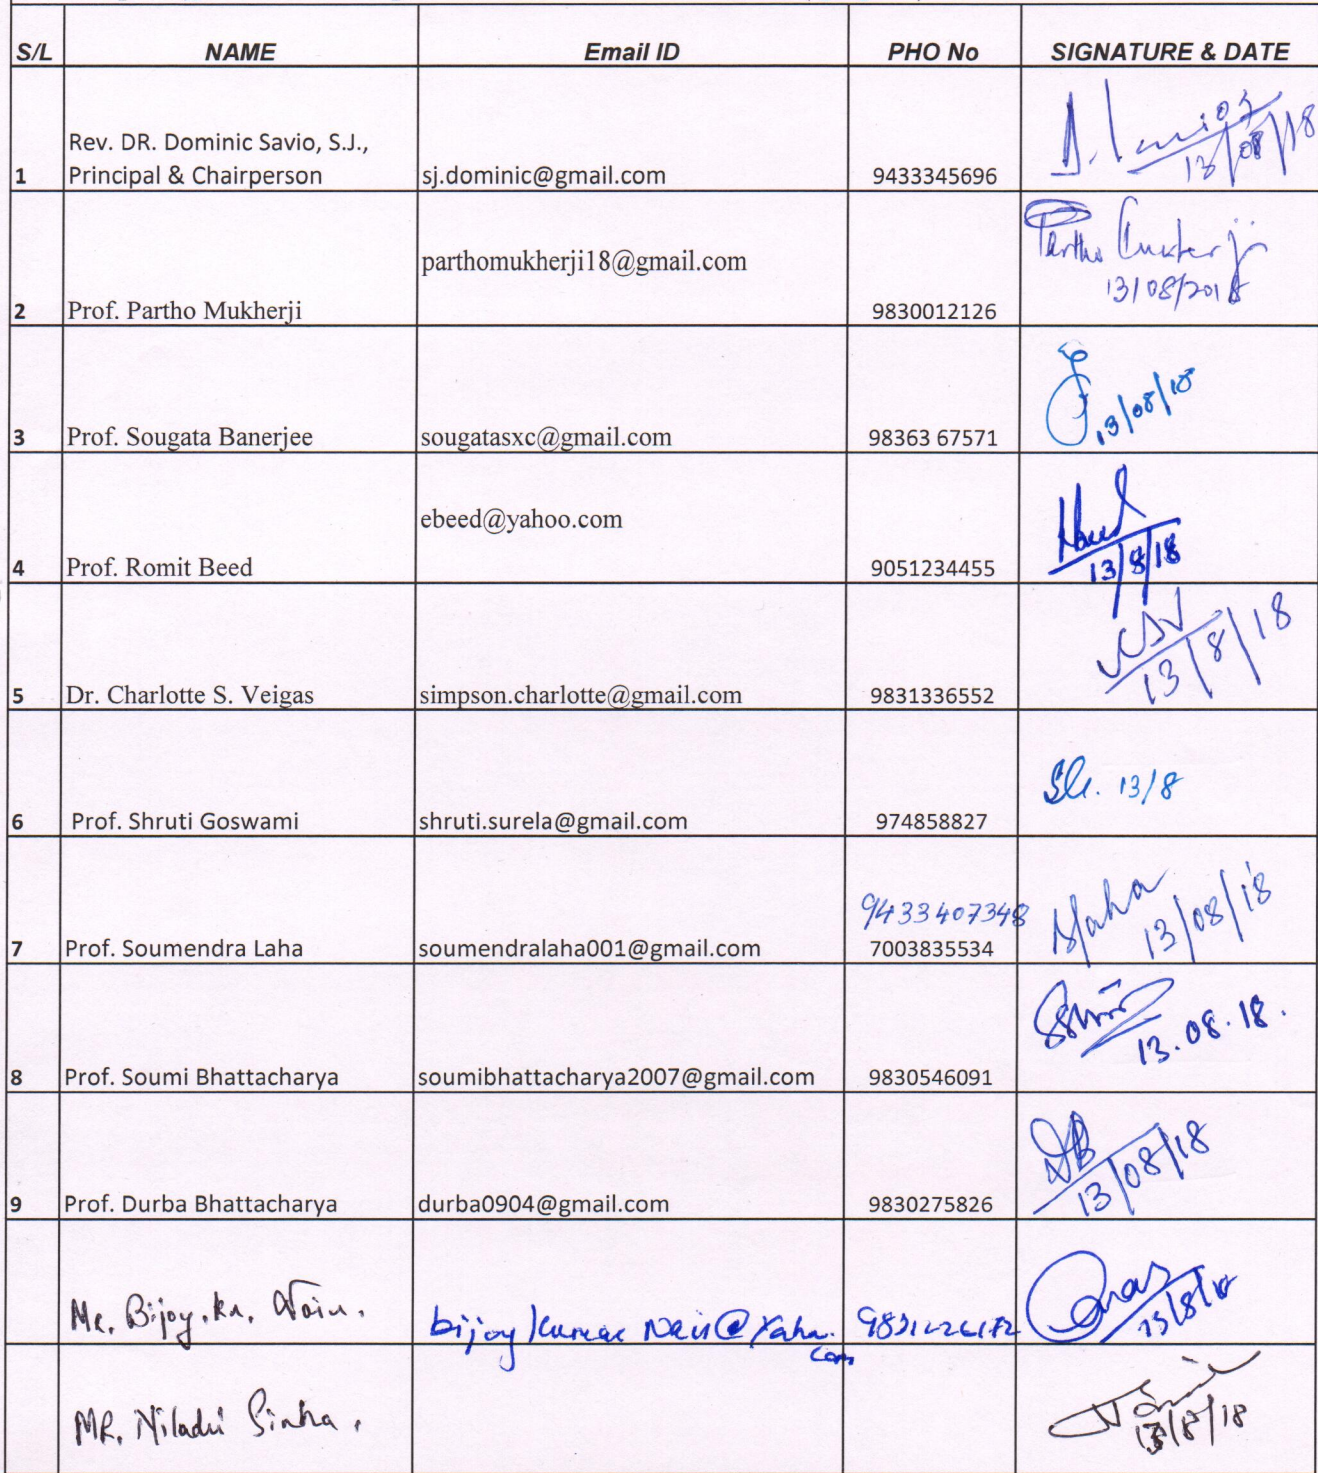 S/L NAME Email ID PHO No SIGNATURE & DATE
Rev. DR. Dominic Savio, S.J.,
1 Principal & Chairperson sj.dominic@gmail.com 9433345696
13/08/18
parthomukherji18@gmail.com
Partho Mukherji
13/08/2018
2 Prof. Partho Mukherji 9830012126
3 Prof. Sougata Banerjee sougatasxc@gmail.com 98363 67571
13/08/18
ebeed@yahoo.com
4 Prof. Romit Beed 9051234455
13/8/18
5 Dr. Charlotte S. Veigas simpson.charlotte@gmail.com 9831336552
13/8/18
13/8
6 Prof. Shruti Goswami shruti.surela@gmail.com 974858827
9433407348
7 Prof. Soumendra Laha soumendralaha001@gmail.com 7003835534
13/08/18
13.08.18.
8 Prof. Soumi Bhattacharya soumibhattacharya2007@gmail.com 9830546091
DB
13/08/18
9 Prof. Durba Bhattacharya durba0904@gmail.com 9830275826
Mr. Bijoy. Kr. Nair.
13/8/18
MR. Niladri Sinha.
13/8/18